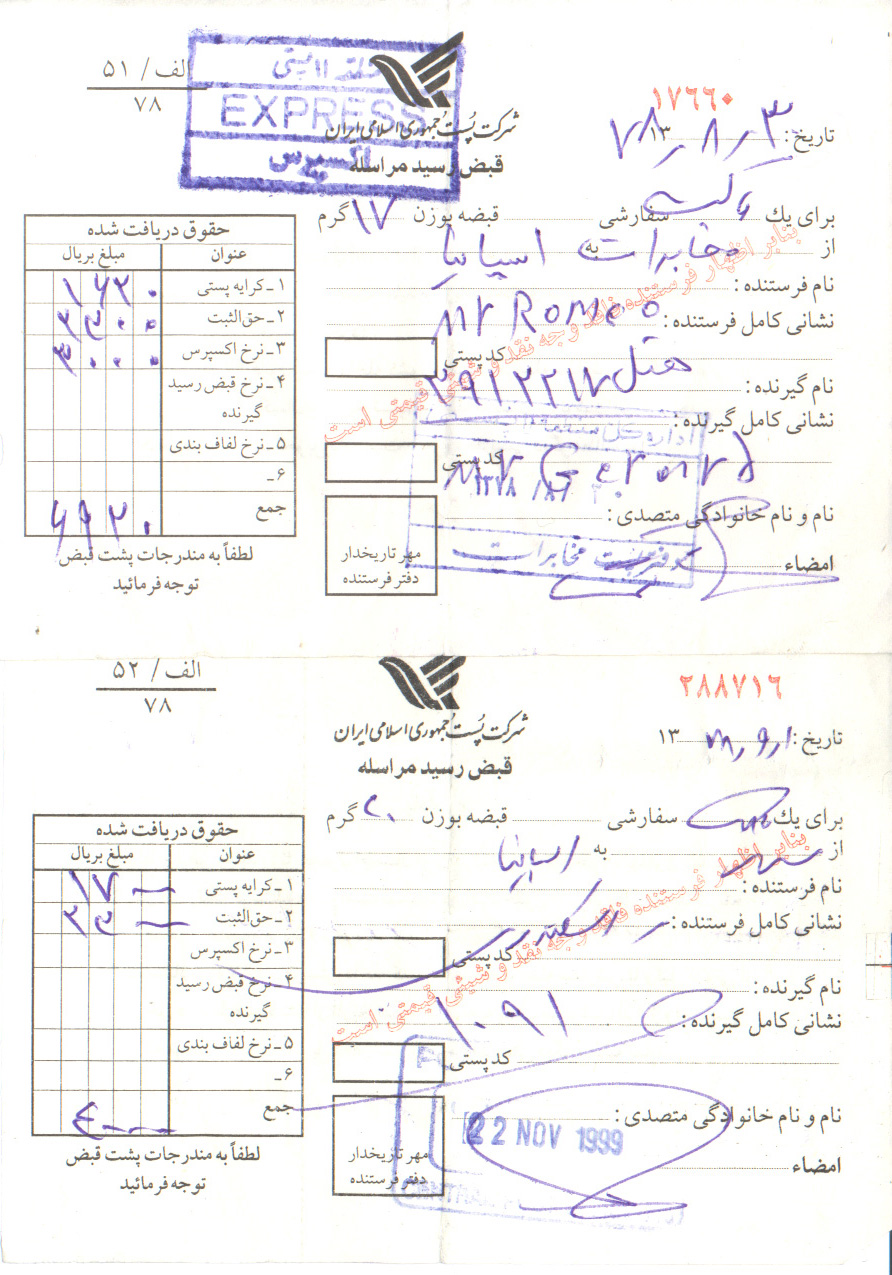 الف/ ۵۱
۷۸
EXPRESS
اکسپرس
شرکت پست جمهوری اسلامی ایران
قبض رسید مراسله
۱۷۶۶۰
تاریخ: ۳ / ۸ / ۱۳۷۸
برای یك پاکت سفارشی قبضه بوزن ۱۷ گرم
از مخابرات به اسپانیا
نام فرستنده:
نشانی کامل فرستنده: Mr Romeo
کد پستی
نام گیرنده: هتل
نشانی کامل گیرنده:
کد پستی
نام و نام خانوادگی متصدی:
امضاء
مهر تاریخدار
دفتر فرستنده
بنابر اظهار فرستنده فاقد وجه نقد و شیئی قیمتی است
حقوق دریافت شده
عنوان مبلغ بریال
۱ـ کرایه پستی
۲ـ حق الثبت ۲۳۰۰
۳ـ نرخ اکسپرس ۳۰۰۰
۴ـ نرخ قبض رسید
گیرنده
۵ـ نرخ لفاف بندی
۶ـ
جمع ۶۹۲۰
لطفاً به مندرجات پشت قبض
توجه فرمائید
الف/ ۵۲
۷۸
شرکت پست جمهوری اسلامی ایران
قبض رسید مراسله
۲۸۸۷۱۶
تاریخ: ۱ / ۹ / ۱۳۷۸
برای یك سفارشی قبضه بوزن ۲۰ گرم
از به اسپانیا
نام فرستنده:
نشانی کامل فرستنده:
کد پستی
نام گیرنده:
نشانی کامل گیرنده: ۱۰۹۱
کد پستی
نام و نام خانوادگی متصدی:
22 NOV 1999
امضاء
مهر تاریخدار
دفتر فرستنده
بنابر اظهار فرستنده فاقد وجه نقد و شیئی قیمتی است
حقوق دریافت شده
عنوان مبلغ بریال
۱ـ کرایه پستی ۱۷
۲ـ حق الثبت ۲۳
۳ـ نرخ اکسپرس
۴ـ نرخ قبض رسید
گیرنده
۵ـ نرخ لفاف بندی
۶ـ
جمع
لطفاً به مندرجات پشت قبض
توجه فرمائید